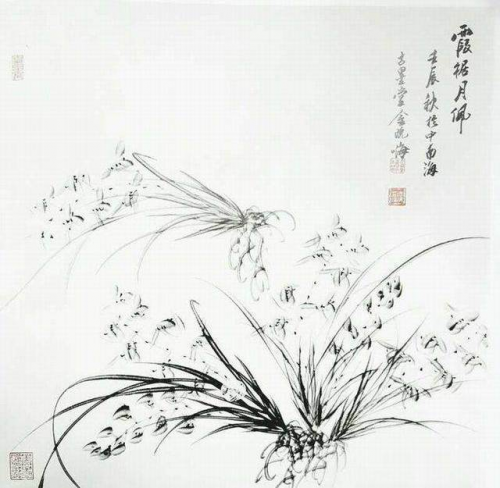 霞裾月佩
壬辰秋于中南海
古墨堂金晓海